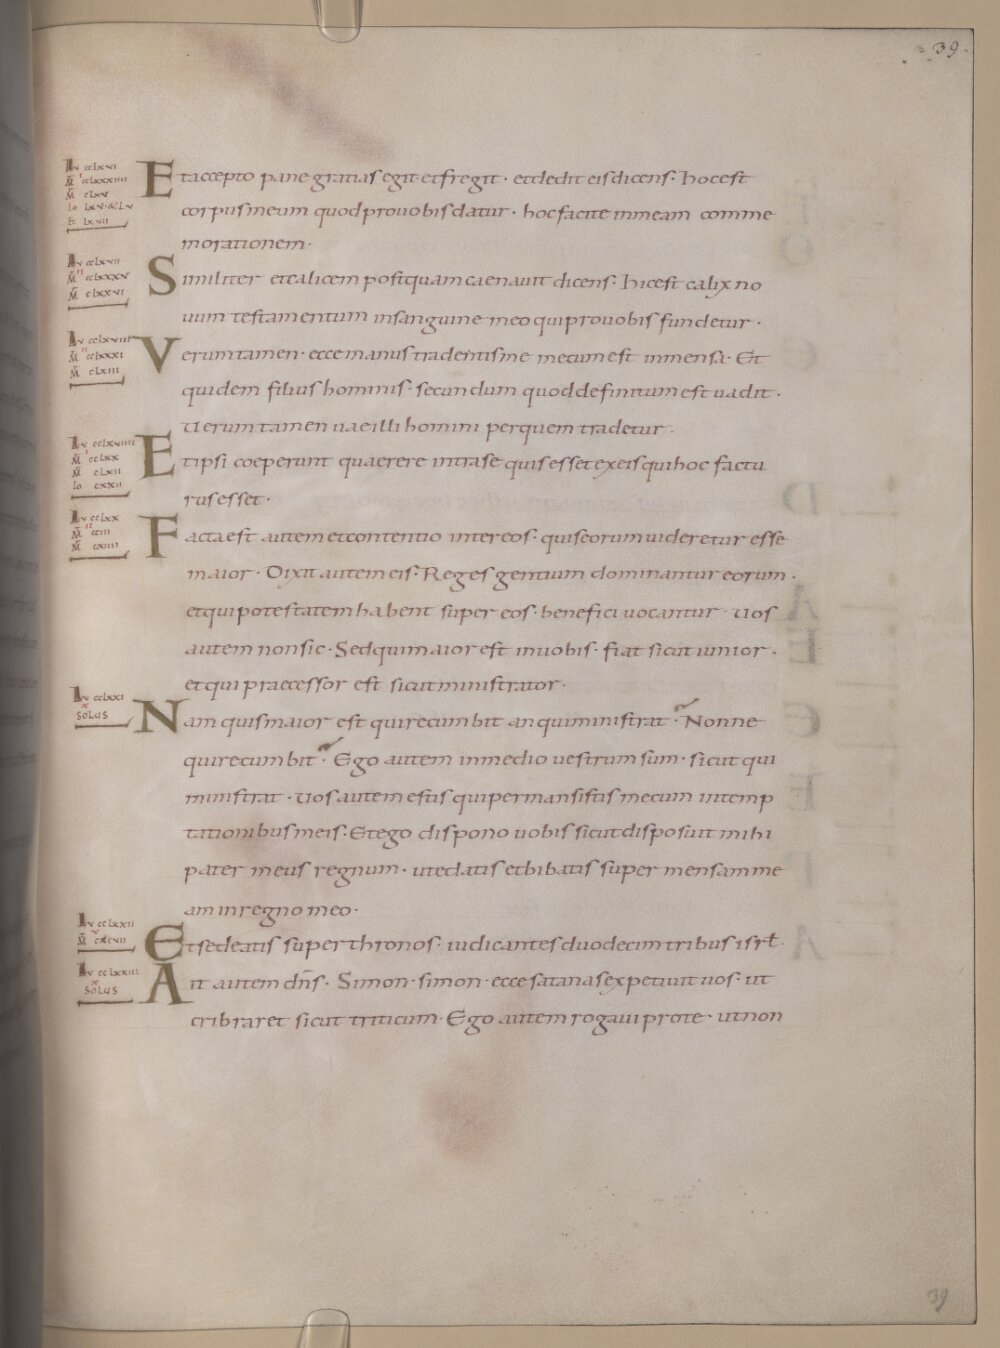 39.
Lv cclxvi
M cclxxxiiii
M clxv
Io lxv. & lv
Et lxvii
Et accepto pane gratias egit et fregit · et dedit eis dicens · hoc est
corpus meum quod pro vobis datur · hoc facite in meam comme
morationem ·
Lv cclxvii
M cclxxxv
M clxxvi
Similiter et calicem postquam caenavit dicens · hic est calix no
vum testamentum in sanguine meo qui pro vobis fundetur ·
Lv cclxviii
M cclxxxi
M clxiii
Verumtamen · ecce manus tradentis me mecum est in mensa · Et
quidem filius hominis · secundum quod definitum est vadit ·
Verumtamen vae illi homini per quem tradetur ·
Lv cclxviiii
M cclxx
M clxii
Io cxxii
Et ipsi coeperunt quaerere intra se quis esset ex eis qui hoc factu
rus esset ·
Lv cclxx
M cciii
M cxiiii
Facta est autem et contentio inter eos · quis eorum videretur esse
maior · Dixit autem eis · Reges gentium dominantur eorum ·
et qui potestatem habent super eos · benefici vocantur · Vos
autem non sic · Sed qui maior est in vobis · fiat sicut iunior ·
et qui praecessor est sicut ministrator ·
Lv cclxxi
SOLUS
Nam quis maior est qui recumbit an qui ministrat · Nonne
qui recumbit · Ego autem in medio vestrum sum · sicut qui
ministrat · vos autem estis qui permansistis mecum in temp
tationibus meis · Et ego dispono vobis sicut disposuit mihi
pater meus regnum · ut edatis et bibatis super mensam me
am in regno meo ·
Lv cclxxii
Et sedeatis super thronos · iudicantes duodecim tribus isrl ·
Lv cclxxiii
SOLUS
Ait autem dn̄s · Simon · simon · ecce satanas expetivit vos · ut
cribraret sicut triticum · Ego autem rogavi pro te · ut non
39